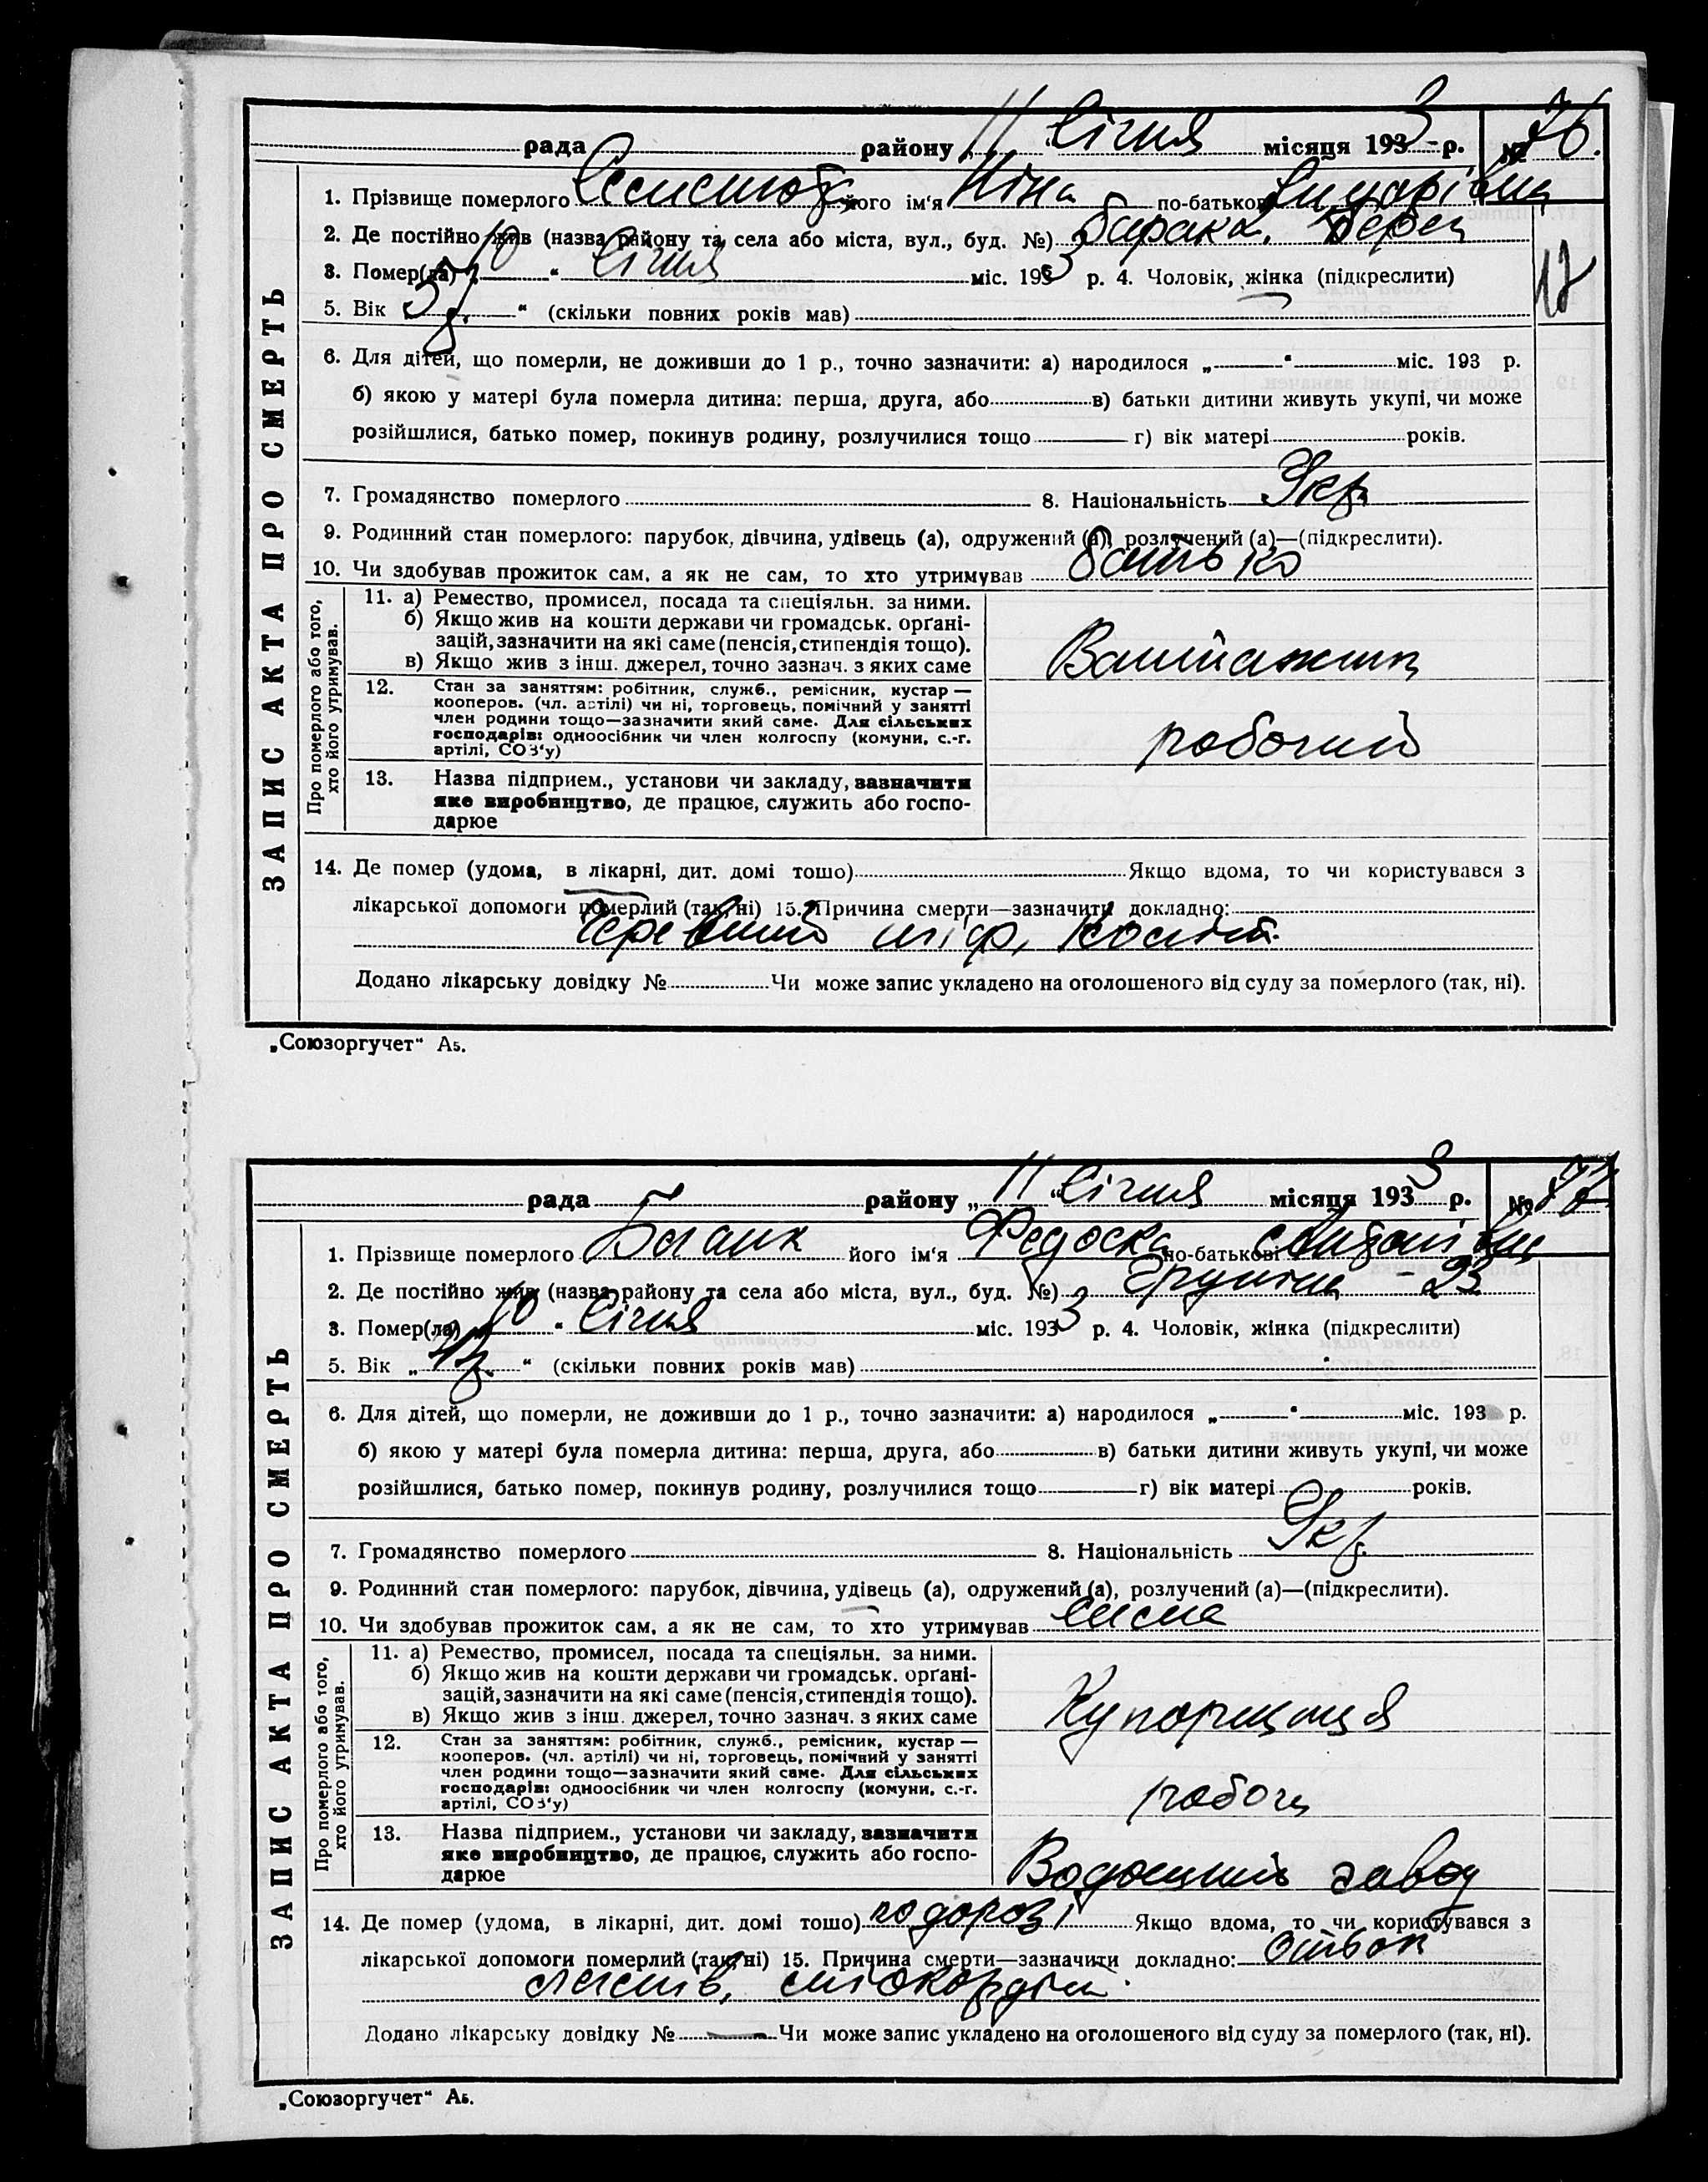 рада района „ 11 “ Січня місяця 1933 р. № 76.
ЗАПИС АКТА ПРО СМЕРТЬ
1. Прізвище померлого його ім'я Ніна по-батькові
2. Де постійно жив (назва району та села або міста, вул., буд. №) Барака,
3. Помер(ла) „ 10 “ Січня міс. 1933 р. 4. Чоловік, жінка (підкреслити)
5. Вік „ “ (скільки повних років мав)
12
6. Для дітей, що померли, не доживши до 1 р., точно зазначити: а) народилося „ — “ міс. 193 р.
б) якою у матері була померла дитина: перша, друга, або в) батьки дитини живуть укупі, чи може
розійшлися, батько помер, покинув родину, розлучилися тощо г) вік матері років.
7. Громадянство померлого 8. Національність Укр.
9. Родинний стан померлого: парубок, дівчина, удівець (а), одружений (а), розлучений (а)—(підкреслити).
10. Чи здобував прожиток сам, а як не сам, то хто утримував батько
Про померлого або того, хто його утримував.
11. а) Ремество, промисел, посада та спеціяльн. за ними.
б) Якщо жив на кошти держави чи громадськ. орґані-
зацій, зазначити на які саме (пенсія, стипендія тощо).
в) Якщо жив з інш. джерел, точно зазнач. з яких саме
Вантажник
12. Стан за заняттям: робітник, служб., ремісник, кустар —
кооперов. (чл. артілі) чи ні, торговець, помічний у занятті
член родини тощо—зазначити який саме. Для сільських
господарів: одноосібник чи член колгоспу (комуни, с.-г.
артілі, СОЗ'у)
робочий
13. Назва підприєм., установи чи закладу, зазначити
яке виробництво, де працює, служить або госпо-
дарює
14. Де помер (удома, в лікарні, дит. домі тощо) Якщо вдома, то чи користувався з
лікарської допомоги померлий (так, ні) 15. Причина смерти—зазначити докладно:
Черевний тіф,
Додано лікарську довідку № Чи може запис укладено на оголошеного від суду за померлого (так, ні).
„Союзоргучет“ А5.
рада району „ 11 “ Січня місяця 1933 р. № 77
ЗАПИС АКТА ПРО СМЕРТЬ
1. Прізвище померлого його ім'я Федоска по-батькові Антонівна
2. Де постійно жив (назва району та села або міста, вул., буд. №) - 23
3. Помер(ла) „ 10 “ Січня міс. 1933 р. 4. Чоловік, жінка (підкреслити)
5. Вік „ “ (скільки повних років мав)
6. Для дітей, що померли, не доживши до 1 р., точно зазначити: а) народилося „ — “ міс. 193 р.
б) якою у матері була померла дитина: перша, друга, або в) батьки дитини живуть укупі, чи може
розійшлися, батько помер, покинув родину, розлучилися тощо г) вік матері років.
7. Громадянство померлого 8. Національність Укр.
9. Родинний стан померлого: парубок, дівчина, удівець (а), одружений (а), розлучений (а)—(підкреслити).
10. Чи здобував прожиток сам, а як не сам, то хто утримував
Про померлого або того, хто його утримував.
11. а) Ремество, промисел, посада та спеціяльн. за ними.
б) Якщо жив на кошти держави чи громадськ. орґані-
зацій, зазначити на які саме (пенсія, стипендія тощо).
в) Якщо жив з інш. джерел, точно зазнач. з яких саме
Купорщиця
12. Стан за заняттям: робітник, служб., ремісник, кустар —
кооперов. (чл. артілі) чи ні, торговець, помічний у занятті
член родини тощо—зазначити який саме. Для сільських
господарів: одноосібник чи член колгоспу (комуни, с.-г.
артілі, СОЗ'у)
робоч
13. Назва підприєм., установи чи закладу, зазначити
яке виробництво, де працює, служить або госпо-
дарює
завод
14. Де помер (удома, в лікарні, дит. домі тощо) по дорозі Якщо вдома, то чи користувався з
лікарської допомоги померлий (так, ні) 15. Причина смерти—зазначити докладно:
Додано лікарську довідку № — Чи може запис укладено на оголошеного від суду за померлого (так, ні).
„Союзоргучет“ А5.